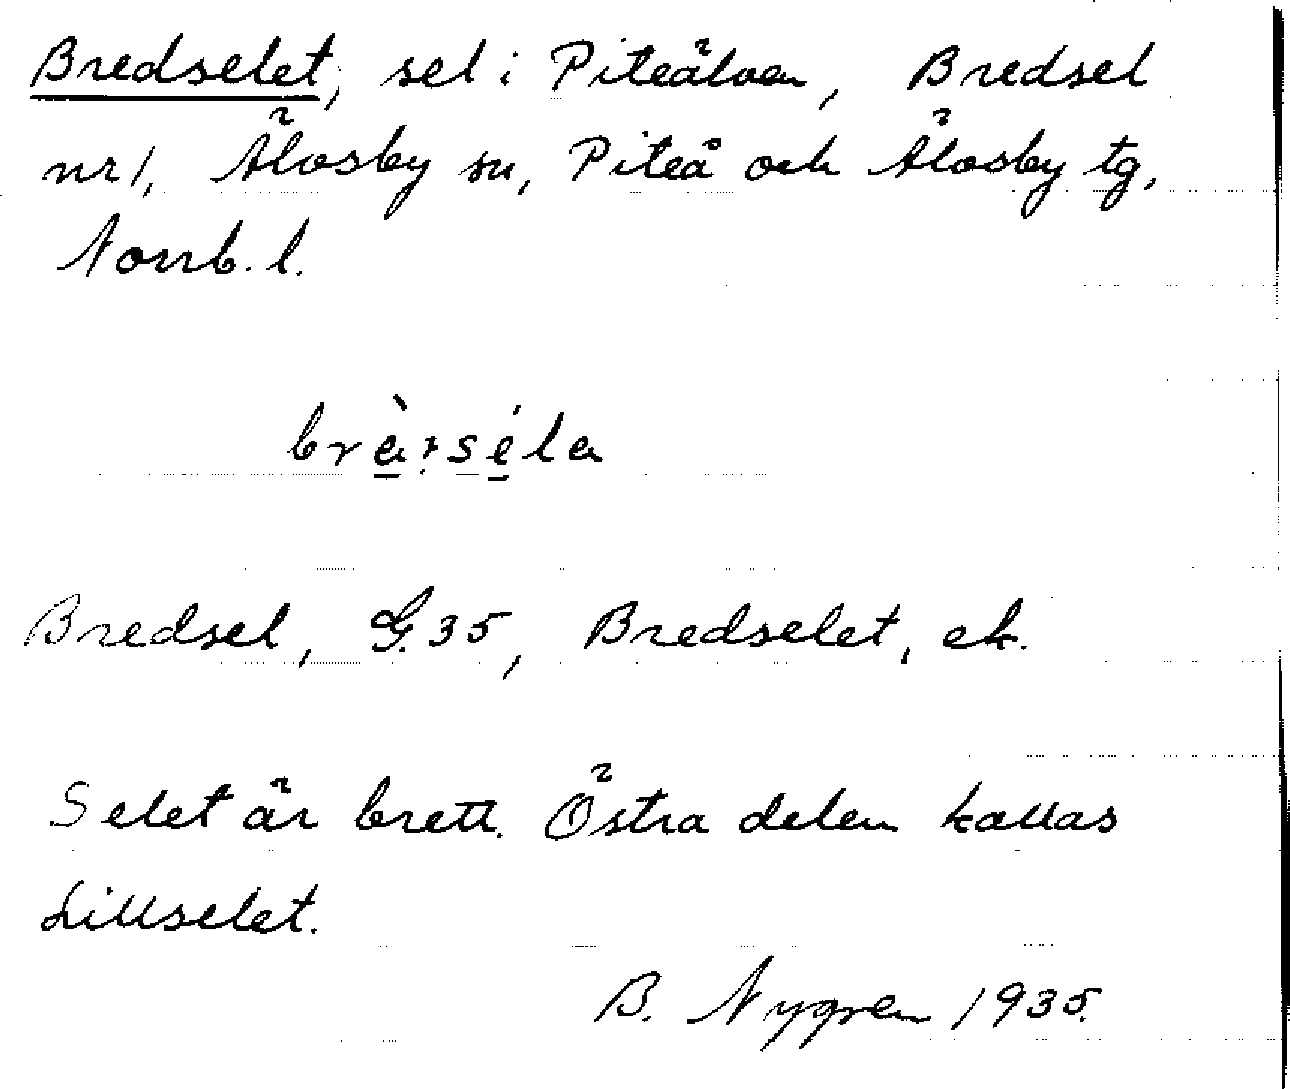 Bredselet, sel i Piteälven, Bredsel
nr 1, Älvsby sn, Piteå och Älvsby tg,
Norrb. l.
Bredsel, G.35, Bredselet, ek.
Selet är brett. Östra delen kallas
Lillselet.
B. Nygren 1935.